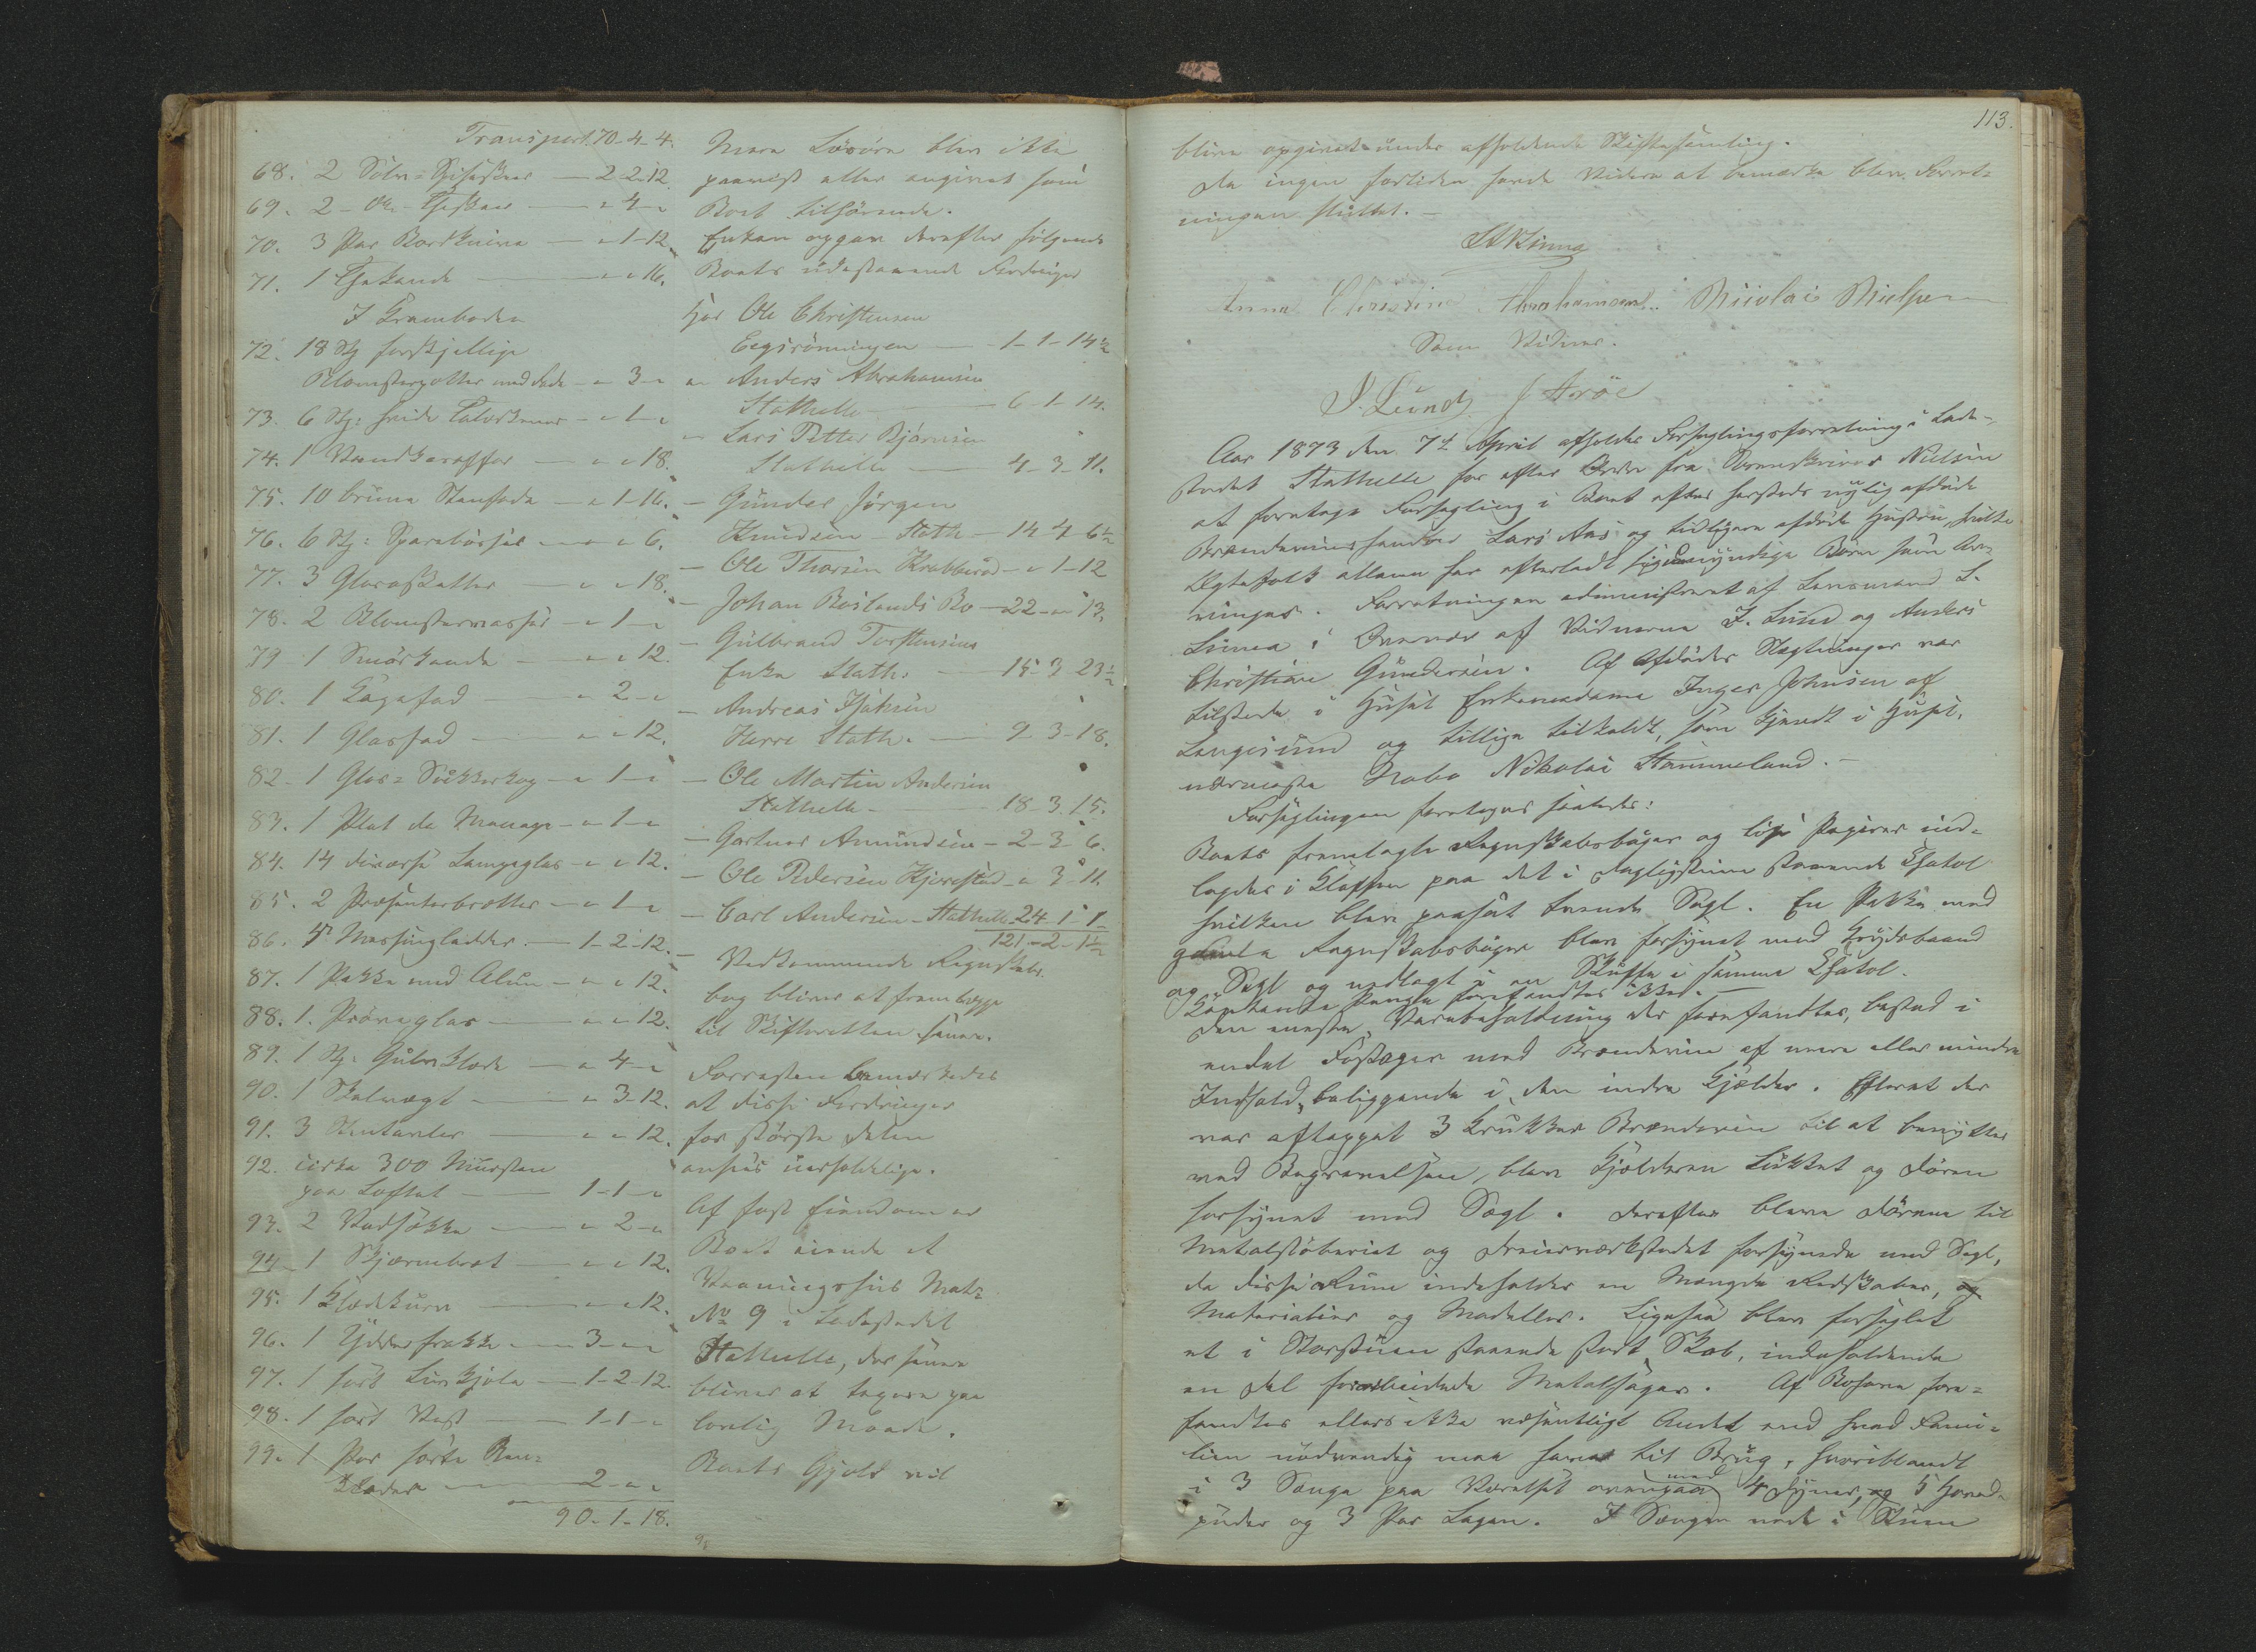 Transport 70-4-4.
68. 2 Sölv=Spiseskeer — 2-2-12.
69. 2 - do - Theskeer — " 4 - "
70. 3 Par Bordknive — " 1-12
71. 1 Thekande — " " 16.
I Kramboden
72. 18 Stk forskjellige
Blomsterpotter med Fade - " 3 - "
73. 6 Stk: hvide Talerkener - " 1 - "
74. 1 Vandkaraffel — " " 18.
75. 10 brune Stenfade — " 1-16.
76. 6 Stk: Sparebösser — " " 6.
77. 3 Glasaskatter — " " 18.
78. 2 Blomstervaser - " 1 - "
79 1 Smörkande — " " 12.
80. 1 Kagefad — " 2 - "
81. 1 Glasfad — " " 12.
82 - 1 Glas=Sukkerkop - " 1 - "
83. 1 Plat de Menage - " 1 - "
84. 14 diverse Lampeglas - " " 12.
85. 2 Præsenterbretter - " 1 - "
86. Messingladder. — 1-2-12.
87. 1 Pakke med Alun - " " 12.
88. 1. Pröveglas — " " 12.
89. 1 Stk: Gulvklæde — " 4 - "
90. 1 Skalvægt — " 3-12.
91. 3 — " " 12.
92. cirka 300 Mursten
paa Loftet — 1-1 - "
93. 2 Vadsække — " 2 - "
94 - 1 Skjærmbret — " " 12.
95. 1 Klædekurv — " " 12.
96. 1 Yderfrakke — 3 - " - "
97. 1 sort Livkjole — 1-2-12.
98. 1 sort Vest — 1-1 - "
99. 1 Par sorte Ben=
klæder — 2 - " "
90-1-18.
Mere Lösöre blev ikke
paavist eller angivet som
Boet tilhörende.
Enken opgav derefter fölgende
Boets udestaaende Fordringer
Hos Ole Christensen
Eegsrönningen — 1-1-14½
" Anders Abrahamsen
Stathelle — 6-1-14.
- Lars Petter Björnsen
Stathelle — 4-3-11.
- Gunder Jörgen
Knudsen - Stath - 14-4-6½
- Ole Thorsen Krabberöd - " 1-12
- Johan Boslands Bo - 22 - " 13.
- Gulbrand Torstensens
Enke Stath: — 15-3-23½
- Andreas Isaksen
Herre Stath. — 9-3-18.
- Ole Martin Andersen
Stathelle — 18-3-15.
- Gartner Amundsen - 2-3-6.
- Ole Pedersen Kjerrestad - " 3-11.
- Carl Andersen - Stathelle 24-1-1-
121-2-1½
Vedkommende Regnskabs=
bog bliver at fremlægge
til Skifteretten senere.
Forresten bemærkedes
at disse Fordringer
for störste Delen
ansees uerholdelige.
Af fast Eiendom er
Boet eiende et
Vaaningshus Matr.
No 9 i Ladestedet
Stathelle, der senere
bliver at taxere paa
lovlig Maade.
Boets Gjæld vil
113.
blive opgivet under afholdende Skiftesamling.
Da ingen forliden havde Videre at bemærke blev Forret=
ningen sluttet. -
Anne Christine Abrahamsen. Nicolai Nielsen
Som Vidner.
J. Lund. J Aröe
Aar 1873 den 7de April afholdes Forseglingsforretning i Lade=
stedet Stathelle for efter Ordre fra Sorenskriver Nielsen
at foretage Forsegling i Boet efter hersteds nylig afdöde
Brændevinshandler Lars Aas og tidligere afdöde Hustru, hvilke
Ægtefolk allene har efterladt sig umyndige Börn som Ar=
vinger. Forretningen administreret af Lensmand L.
Linna i Overvær af Vidnerne J. Lund og Anders
Christian Gundersen. Af Afdödes Slægtninger var
tilstede i Huset Enkemadame Inger Johnsen af
Langesund og tillige tilkaldt, som kjendt i Huset,
nærmeste Nabo Nikolai Stammeland. -
Forseglingen foretoges saaledes:
Boets fremlagte Regnskabsböger og löse Papirer ind=
lagdes i Klaffen paa det i Dagligstuen staaende Chatol
hvilken blev paasat tvende Segl. En Pakke med
gamle Regnskabsböger blev forsynet med Krydsbaand
og Segl og nedlagt i en Skuffe i samme Chatol.
Kontante Penge forefandtes ikke. -
Den eneste Varebeholdning der forefandtes, bestod i
endel Fustager med Brændevin af mere eller mindre
Indhold, beliggende i den indre Kjelder. Efterat der
var aftappet 3 Krukker Brændevin til at benyttes
ved Begravelsen, blev Kjelderen lukket og Dören
forsynet med Segl. Derefter bleve Dörene til
Metalstöberiet og Dreierværkstedet forsynede med Segl,
da disse Rum indeholder en Mængde Redskaber,
Materialier og Modeller. Ligesaa blev forseglet
et i Storstuen staaende stort Skab, indeholdende
en Del forarbeidede Metalsager. Af Bohave fore=
fandtes ellers ikke væsentligt Andet end hvad Fami=
lien nödvendig maa have til Brug, hvoriblandt
i 3 Senge paa Værelset ovenpaa med 4 Dyner, og 5 Hoved=
puder og 3 Par Lagen. I Sengen nede i Stuen